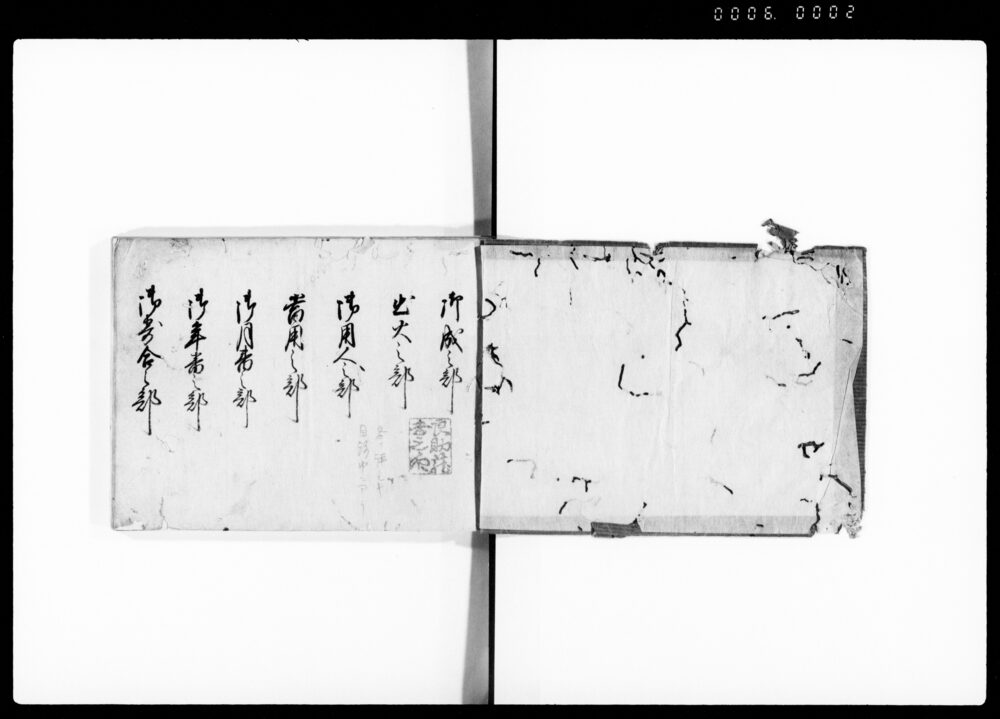 0006. 0002
御成之部
出火之部
御用人之部
當用之部
御月番之部
御年番之部
御寄合之部